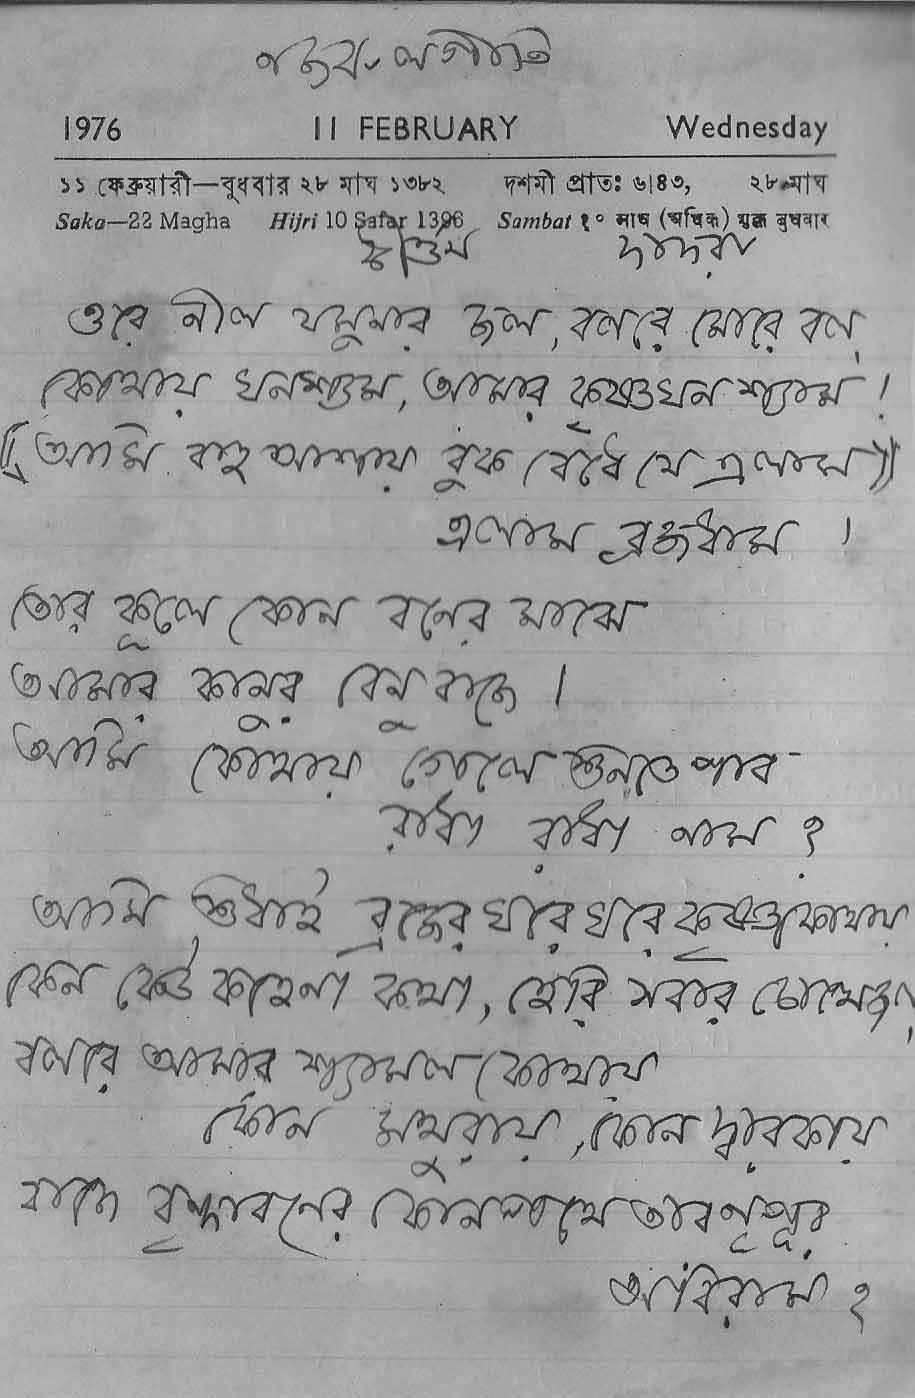 নজরুলগীতি
1976 11 FEBRUARY Wednesday
১১ ফেব্রুয়ারী—বুধবার ২৮ মাঘ ১৩৮২ দশমী প্রাতঃ ৬।৪৩, ২৮ মাঘ
Saka—22 Magha Hijri 10 Safar 1396 Sambat १० माघ (अधिक) शुक्ल बुधवार
দাদরা
ওরে নীল যমুনার জল, বলরে মোরে বল,
কোথায় ঘনশ্যাম, আমার কৃষ্ণ ঘন শ্যাম।
((আমি বহু আশায় বুক বেঁধে যে এলাম))
এলাম ব্রজধাম।
তোর কূলে কোন বনের মাঝে
আমার কানুর বেনু বাজে।
আমি কোথায় গেলে শুনতে পাব
রাধা রাধা নাম?
আমি শুধাই ব্রজের ঘরে ঘরে কৃষ্ণ কোথায়
কেন কেউ কহেনা কথা, হেরি সবার চোখে জল
বলরে আমার শ্যামল কোথায়
কোন মথুরায়, কোন দ্বারকায়
বাজে বৃন্দাবনের কোন পথে তার নূপুর
অবিরাম?